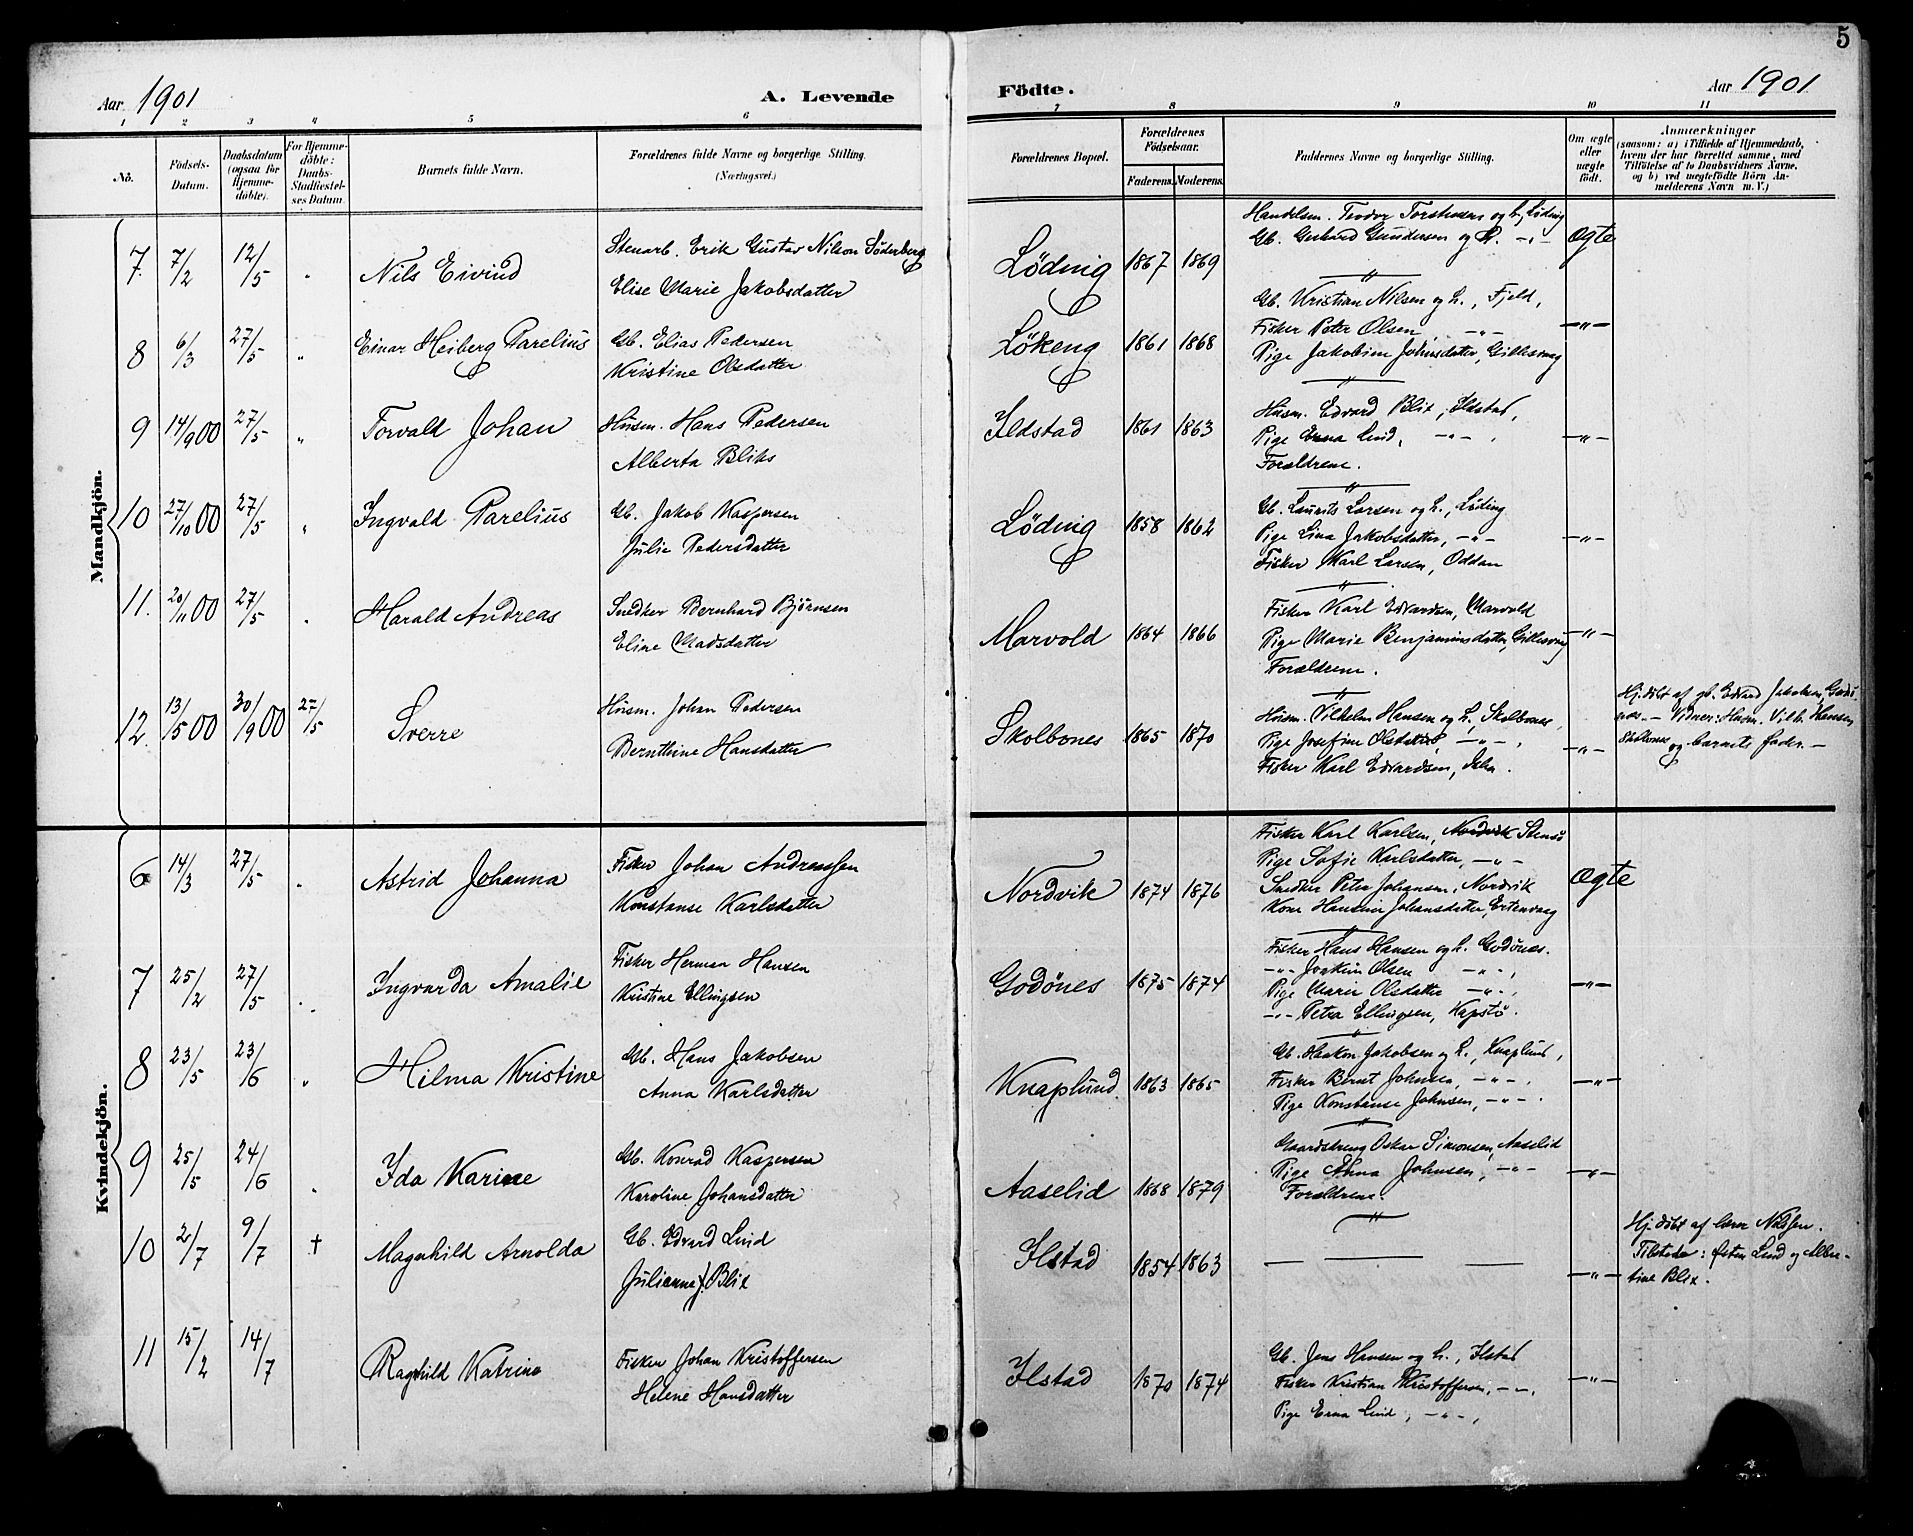 5
Aar 1901
A. Levende
Födte.
Aar 1901
1 2 3 4 5 6 7 8 9 10 11
No.
Födsels-
Datum.
Daabsdatum
(ogsaa for
Hjemme-
döbte).
For Hjemme-
döbte:
Daabs-
Stadfæstel-
ses Datum.
Barnets fulde Navn.
Forældrenes fulde Navne og borgerlige Stilling.
(Næringsvei.)
Forældrenes Bopæl.
Forældrenes
Födselsaar.
Faderens. Moderens.
Faddernes Navne og borgerlige Stilling.
Om ægte
eller
uægte
födt.
Anmærkninger
(saasom: a) i Tilfælde af Hjemmedaab,
hvem der har forrettet samme, med
Tilföielse af to Daabsvidners Navne.
og b) ved uægtefödte Börn An-
melderens Navn m. V.)
Mandkjön.
7. 7/2 12/5 " Nils Eivind
Stenarb. Erik Gustav Nilson Söderberg
Elise Marie Jakobsdatter
Löding 1867 1869
Handelsm. Teodor Torstensen og h., Löding
Gb. Gerhard Gundersen og h. -"-
ægte
8 6/3 27/5 " Einar Heiberg Parelius
Gb. Elias Pedersen
Kristine Olsdatter
Lökeng 1861 1868
Gb. Kristian Nilsen og h., Fjeld,
Fisker Peter Olsen, -"-
Pige Jakobine Johnsdatter, Gillesvaag
-"-
9 14/9 00 27/5 " Torvald Johan
Husm. Hans Pedersen
Alberta Bliks
Ildstad 1861 1863
Husm. Edvard Blix, Ildstad,
Pige Erna Lind, -"-,
Forældrene.
-"-
10 27/10 00 27/5 " Ingvald Parelius
Gb. Jakob Kaspersen
Julie Pedersdatter
Löding 1858 1862
Gb. Laurits Larsen og h., Löding
Pige Lina Jakobsdatter, -"-
Fisker Karl Larsen, Oddan
-"-
11. 20/11 00 27/5 " Harald Andreas
Snedker Bernhard Björnsen
Eline Madsdatter
Marvold 1864 1866
Fisker Karl Edvardsen, Marvold
Pige Marie Benjaminsdatter, Gillesvaag
Forældrene.
-"-
12. 13/5 00 30/9 00 27/5 Sverre
Husm. Johan Pedersen
Bernthine Hansdatter
Skolbones 1865 1870
Husm. Vilhelm Hansen og h., Skolbones,
Pige Josefine Olsdatter, -"-,
Fisker Karl Edvardsen,
-"-
Hj. döbt af gb. Edvard Jakobsen, Godö
næs. - Vidner: Husm. Vilh. Hansen
Skolbones og barnets fader. -
Kvindekjön.
6 14/3 27/5 " Astrid Johanna
Fisker Johan Andreassen
Konstanse Karlsdatter
Nordvik 1874 1876
Fisker Karl Karlsen, Nordvik Stensö
Pige Sofie Karlsdatter, -"-
Snedker Peter Johansen, Nordvik
Kone Hansine Johansdatter, Ertenvaag
ægte
7 25/2 27/5 " Ingvarda Amalie
Fisker Herman Hansen
Kristine Ellingsen
Godönes 1875 1874
Fisker Hans Hansen og h. Godönes.
-"- Joakim Olsen -"-,
Pige Marie Olsdatter -"-,
-"- Petra Ellingsen, Kapstö.
-"-
8 23/5 23/6 " Hilma Kristine
Gb. Hans Jakobsen
Anna Karlsdatter
Knaplund 1863 1865
Gb. Haakon Jakobsen og h., Knaplund,
Fisker Bernt Johnsen, -"-,
Pige Konstanse Johnsen, -"-.
-"-
9 25/5 24/6 " Ida Karine
Gb. Konrad Kaspersen
Karoline Johansdatter
Aaselid 1868 1879
Gaardskreng Oskar Simonsen, Aaselid
Pige Anna Johnsen, -"-
Forældrene
-"-
10 2/7 9/7 † Magnhild Arnolda
Gb. Edvard Lind
Julianne J. Blix
Ilstad 1854 1863
— — —
-"-
Hj. döbt af lærer Nilssen.
Tilstede: Lind og Alber-
tine Blix.
11 15/2 14/7 Ragnhild Katrine
Fisker Johan Kristoffersen
Helene Hansdatter
Ilstad 1870 1874
Gb. Jens Hansen og h., Ilstad
Fisker Kristian Kristoffersen, -"-,
Pige Erna Lind, -"-,
-"-